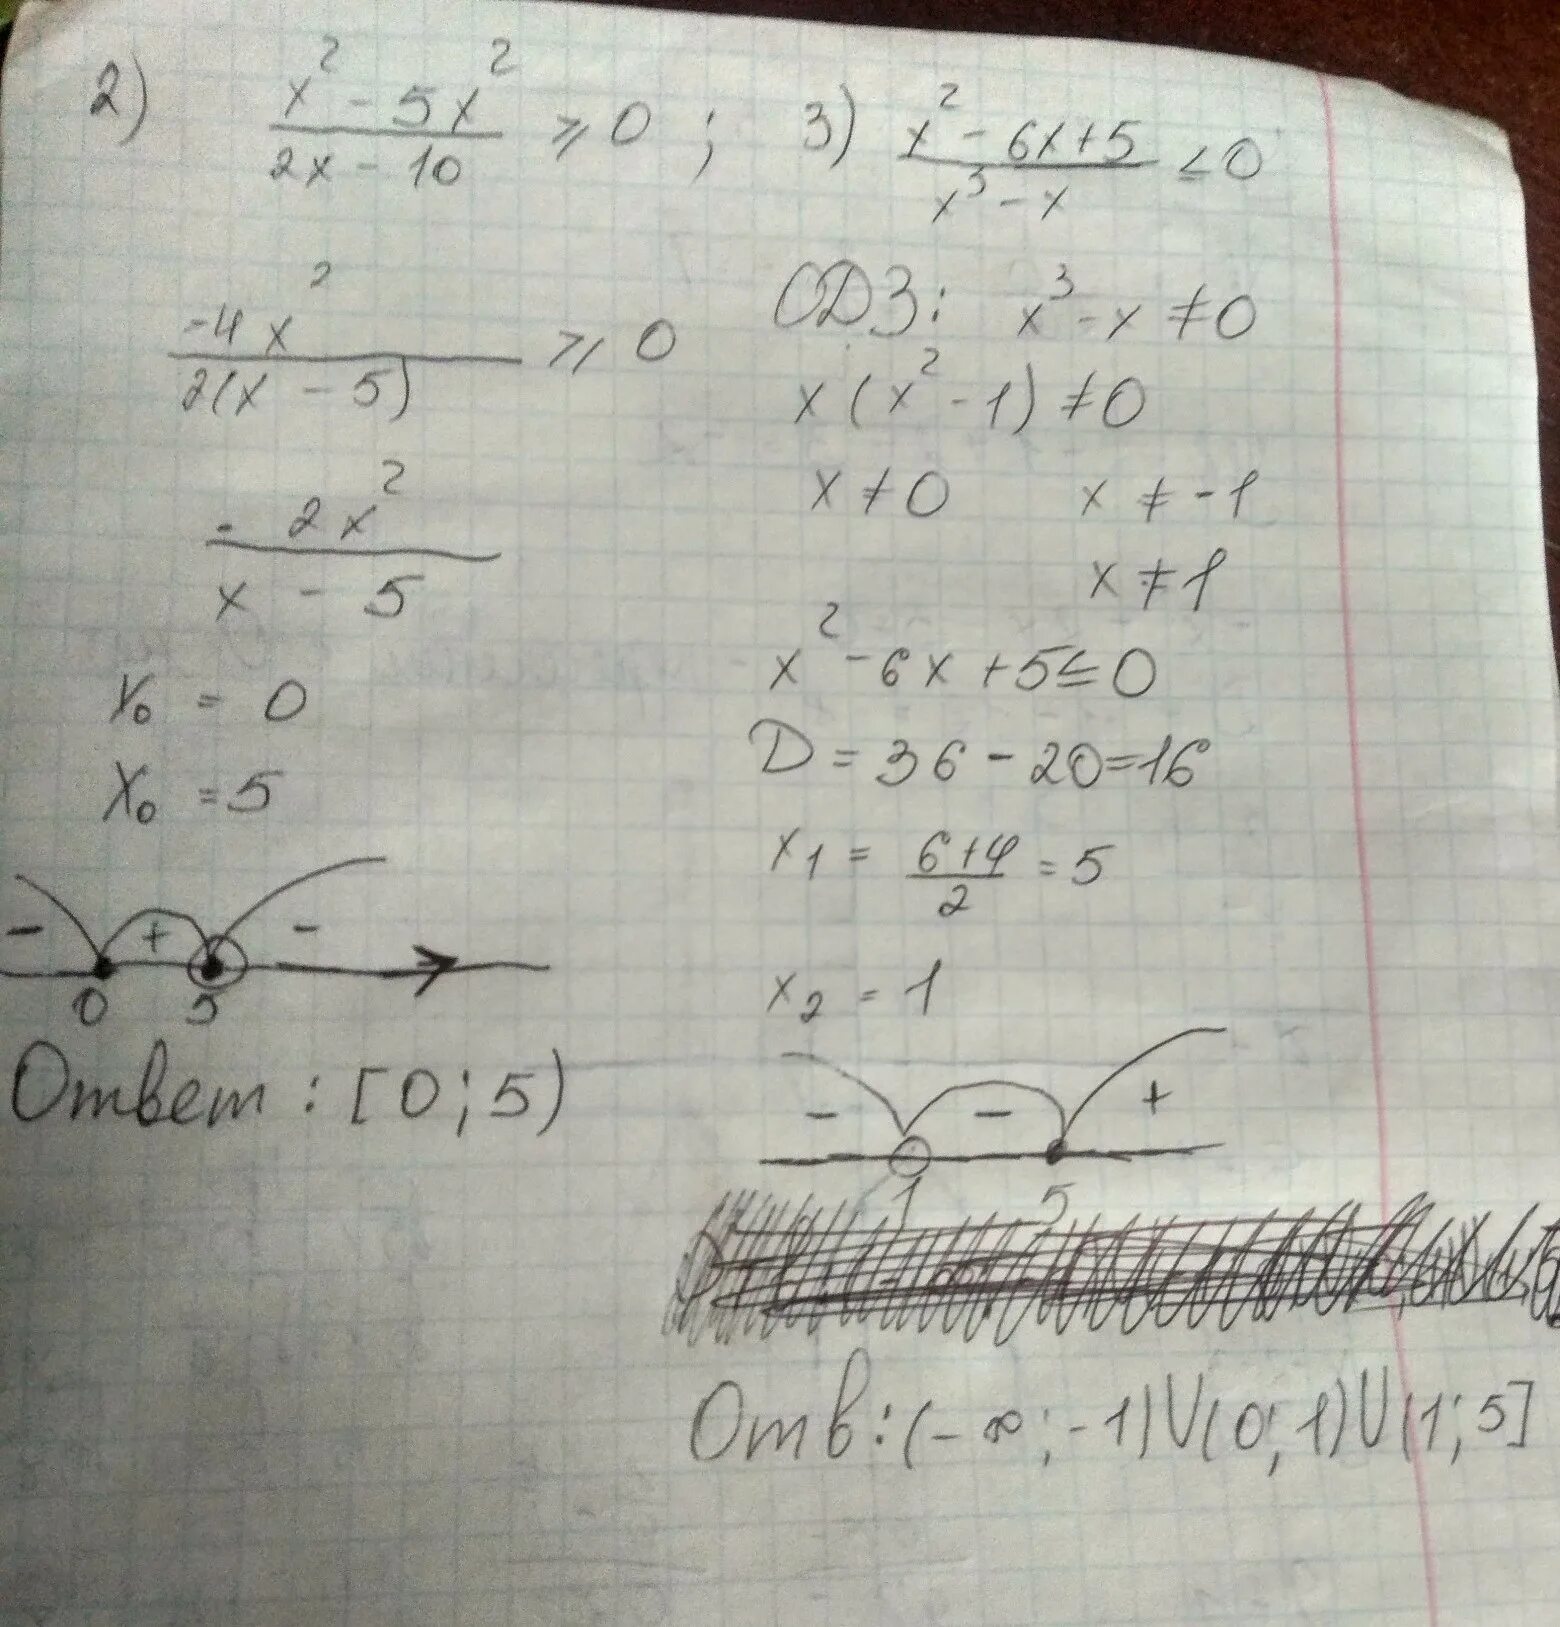 2) x² - 5x² / 2x - 10 ⩾ 0 ;
-4x² / 2(x - 5) ⩾ 0
- 2x² / x - 5
x₀ = 0
x₀ = 5
- + -
0 5
Ответ : [0; 5)
3) x² - 6x + 5 / x³ - x ≤ 0
ОДЗ: x³ - x ≠ 0
x (x² - 1) ≠ 0
x ≠ 0 x ≠ -1
x ≠ 1
x² - 6x + 5 ≤ 0
D = 36 - 20 = 16
x₁ = 6+4 / 2 = 5
x₂ = 1
- - +
1 5
Отв: (-∞; -1)U(0; 1)U(1; 5]